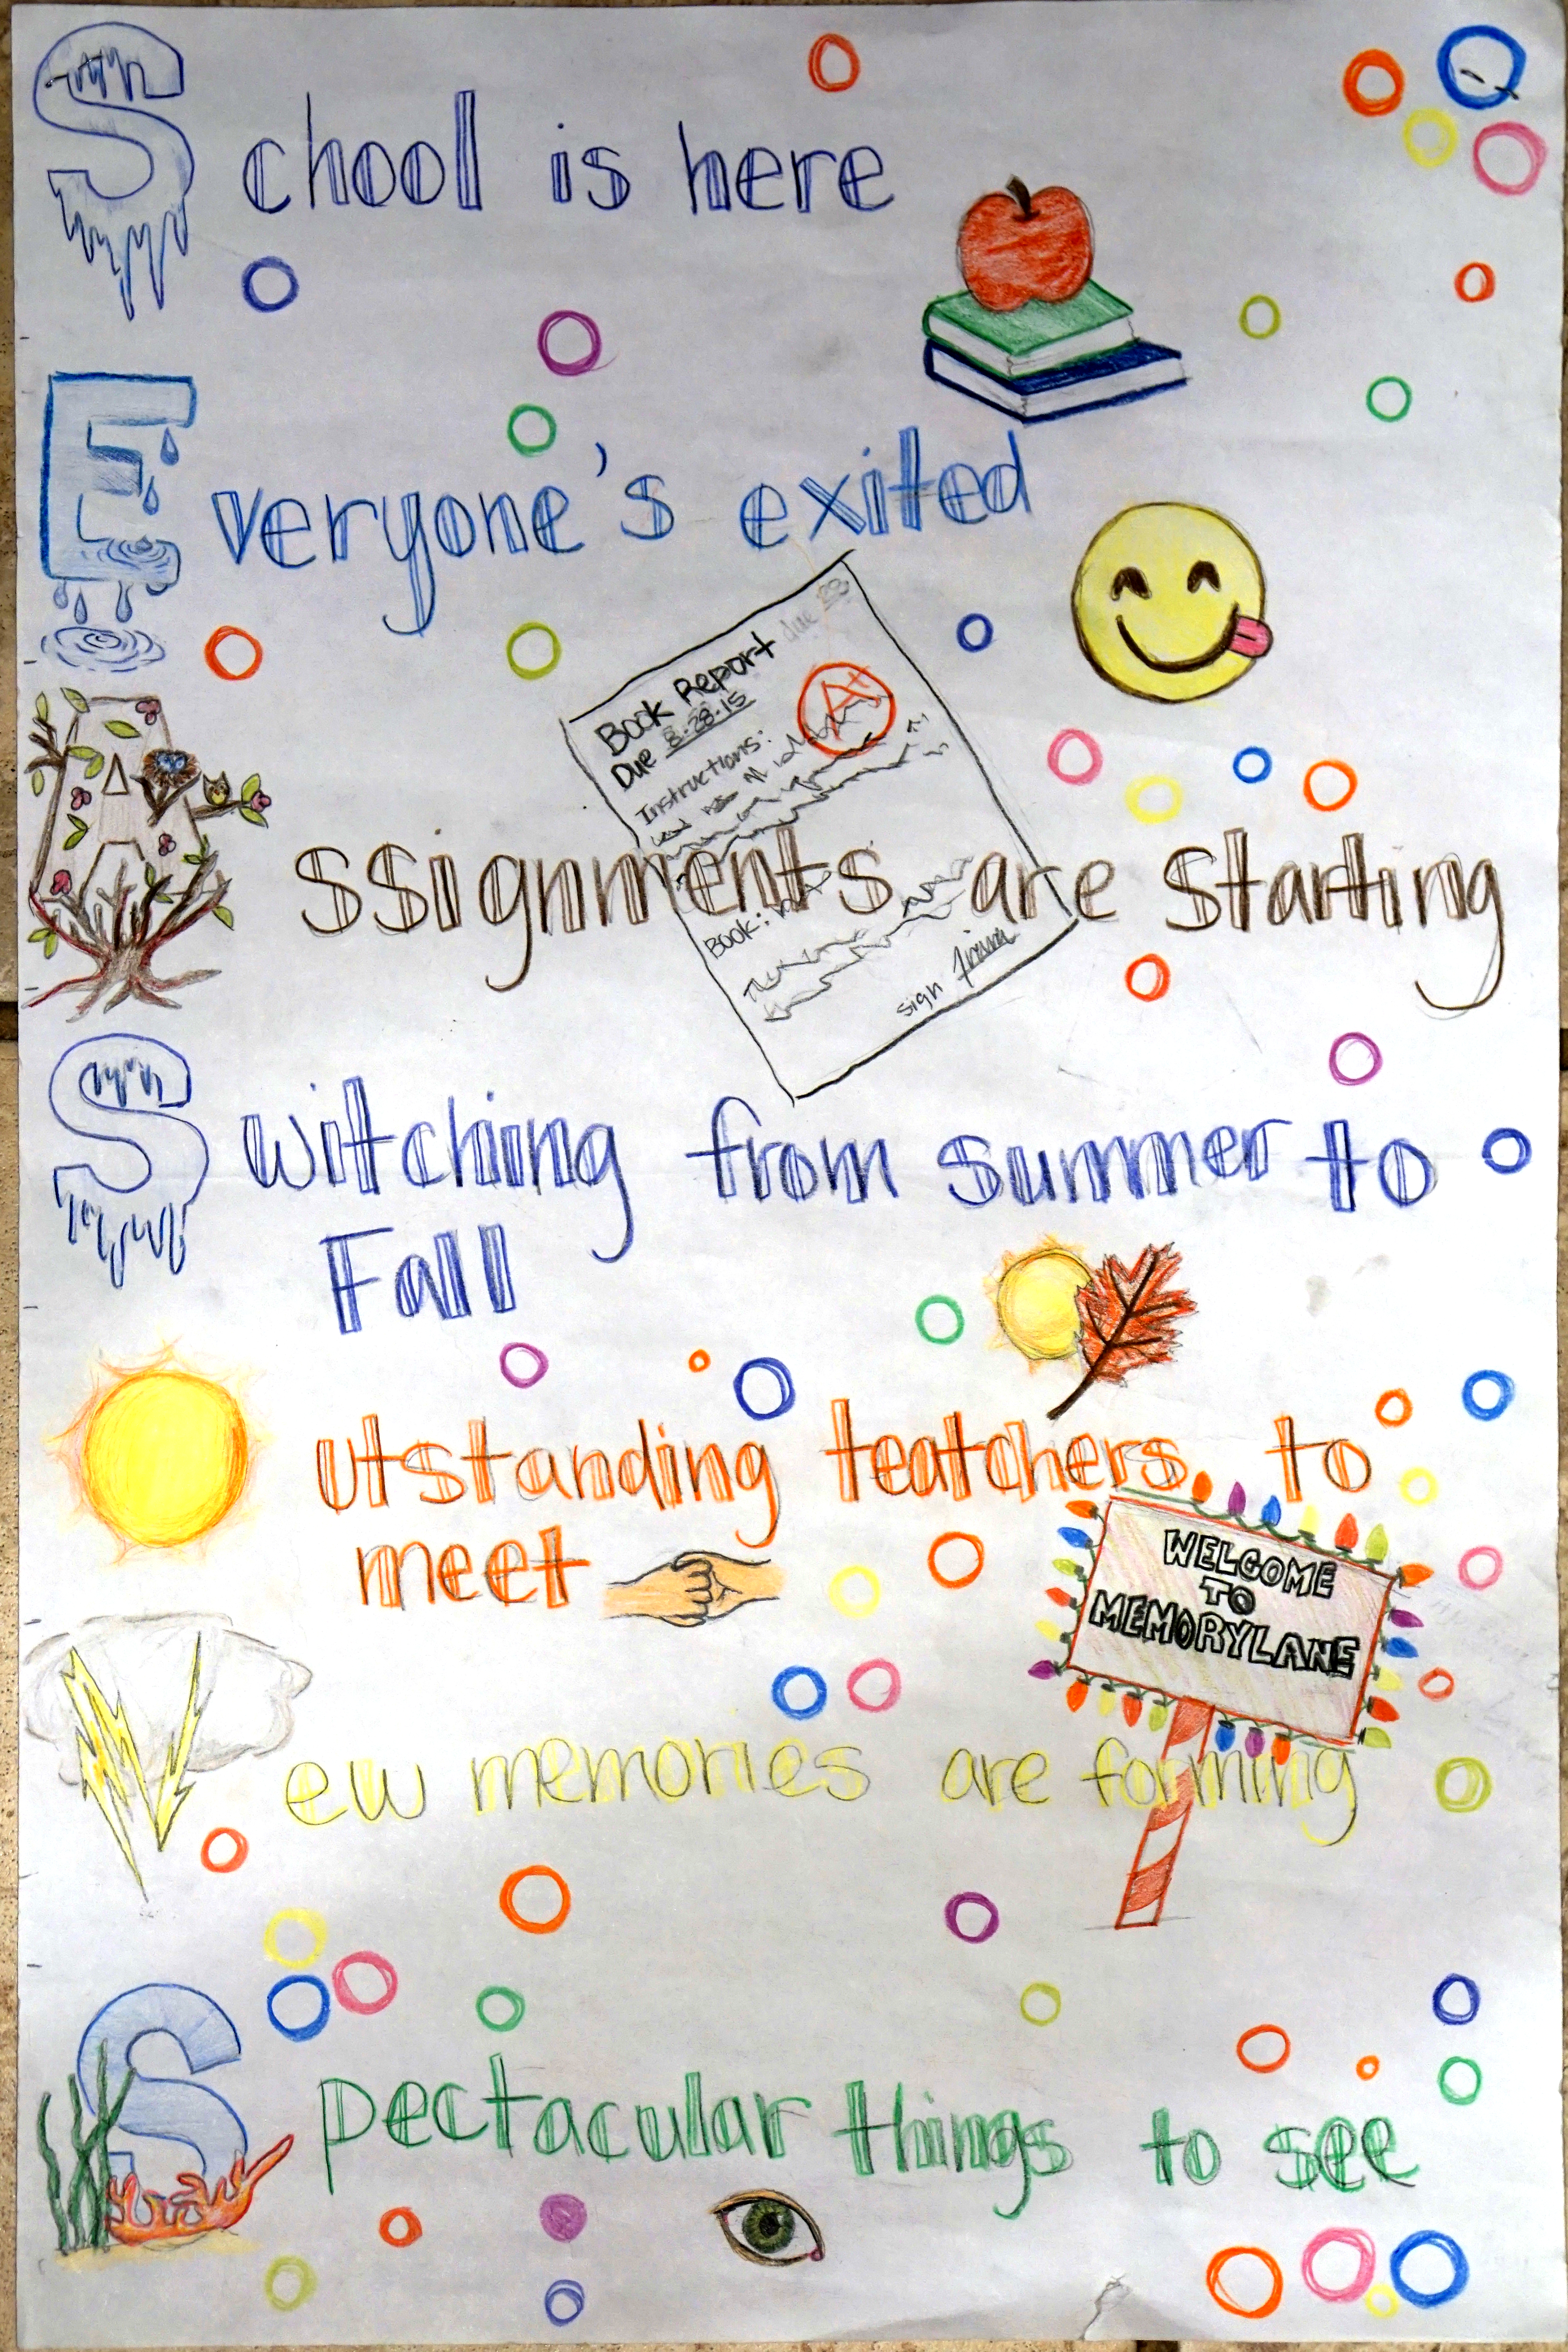 School is here
Everyone's exited
Book Report due 28
Due 8.28.15
A+
Instructions:
Assignments are starting
Book:
sign
Switching from summer to
Fall
Outstanding teatchers to
meet
WELCOME
TO
MEMORYLANE
New memories are forming
Spectacular things to see